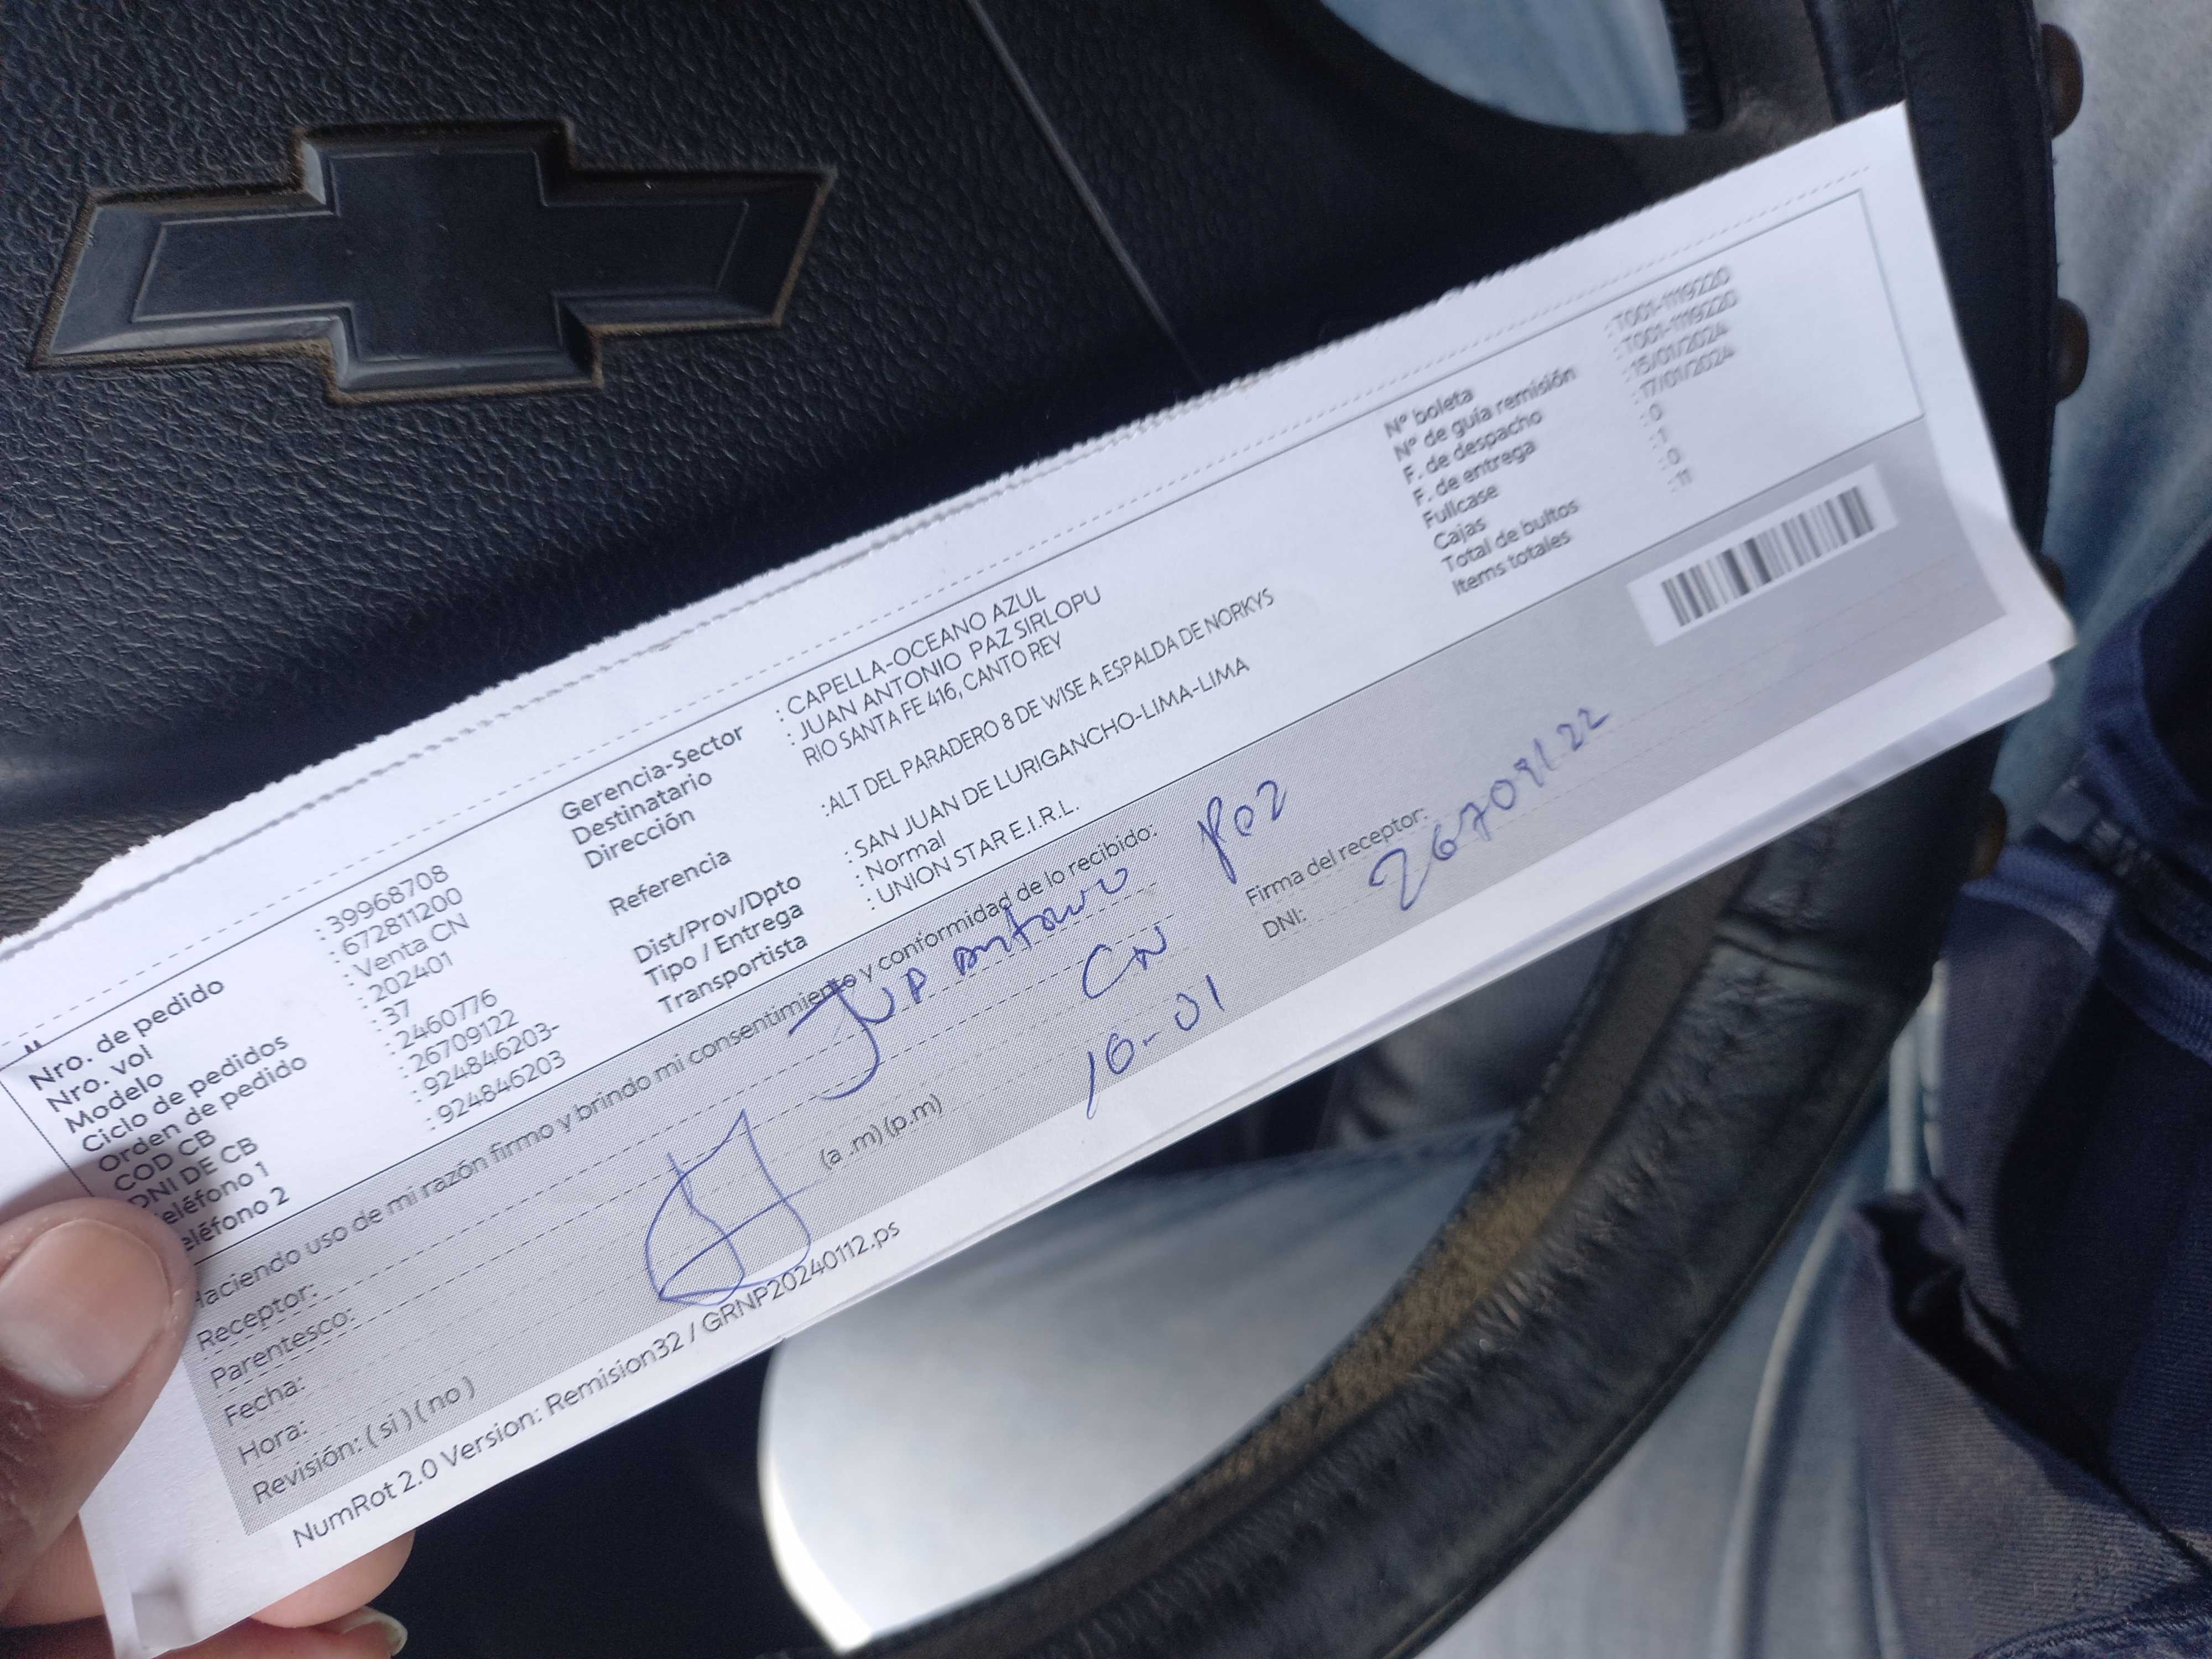 Nro. de pedido : 39968708
Nro. vol : 672811200
Modelo : Venta CN
Ciclo de pedidos : 202401
Orden de pedido : 37
COD CB : 2460776
DNI DE CB : 26709122
eléfono 1 : 924846203-
eléfono 2 : 924846203
Gerencia-Sector : CAPELLA-OCEANO AZUL
Destinatario : JUAN ANTONIO PAZ SIRLOPU
Dirección : RIO SANTA FE 416, CANTO REY
Referencia :ALT DEL PARADERO 8 DE WISE A ESPALDA DE NORKYS
Dist/Prov/Dpto : SAN JUAN DE LURIGANCHO-LIMA-LIMA
Tipo / Entrega : Normal
Transportista : UNION STAR E.I.R.L.
N° boleta : T001-1119220
N° de guía remisión : T001-1119220
F. de despacho : 15/01/2024
F. de entrega : 17/01/2024
Fullcase : 0
Cajas : 1
Total de bultos : 0
Items totales : 11
Haciendo uso de mi razón firmo y brindo mi consentimiento y conformidad de lo recibido:
Receptor: antonio Paz
Parentesco: CN
Fecha: 16-01
Hora: (a .m) (p.m)
Revisión: ( si ) ( no )
Firma del receptor:
DNI: 26709122
NumRot 2.0 Version: Remision32 / GRNP20240112.ps